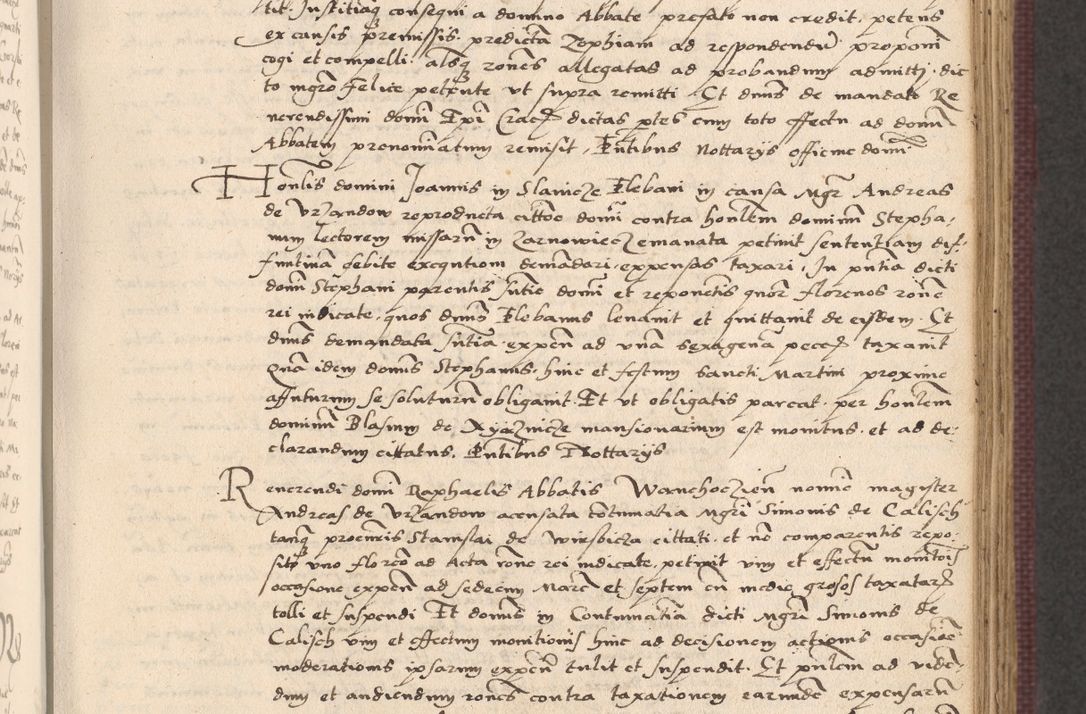 tit. Justitiaq consequi a domino Abbate prefato non credit, petens
ex causis premissis, predictã Zophiam ad respondendũ proponi
cogi et compelli, alsq rones allegatas ad probandum admitti, dic
to mgro Felice petente ut supra remitti. Et dnus de mandato Re
uerendissimi domi Epi Crac dictas ptes cum toto effectu ad domi
Abbatem prenominatum remisit, Pntibus Nottarys officine domi
Honlis domini Joannis in Slanicze Plebani in causa Mgr Andreas
de Vrzandow reproducta cittoe domi contra honlem dominum Stepha,
num lectorem missarũ in Zarnowiecz emanata petiuit sententiam dif,
finitiuã debite exequtiom demãdari, expensas taxari, In pntia dicti
domi Stephani parentis sntie domi et reponetis quor florenos rone
rei iudicate, quos dnus Plebanus leuauit et quittauit de eisdem. Et
dnus demandata sntia expen ad unã sexagenã pecc taxauit
Quã idem domus Stephanus, hinc et festum sancti Martini proxime
affuturum se soluturũ obligauit. Et ut obligatis pareat, per honlem
dominũ Blasium de Xyaznicze mansionarium est monitus, et ad de:
clarandum cittatus, Pntibus Nottarys
Reuerendi domi Raphaelis Abbatis Wanchoczien nomie magister
Andreas de Vrzandow acensata cõtumatia Mgri Simonis de Calisch
tanq procuris Stanislai de Wirsbicza cittati, et nõ comparentis repo,
sito vno floreo ad Acta rone rei iudicate, petiuit vim et effectũ monitois
occasione expen ad sedecim Marc et septem cũ medio grosos taxatar
tolli et suspendi Et domus in Contumatia dicti Mgri Simonis de
Calisch vim et effectum monitionis hinc ad decisionem actionis occasioe
moderationis ipsarum expen tulit et suspendit. Et pnlem ad vide,
dum et audiendum rones contra taxationem earunde expensarũ